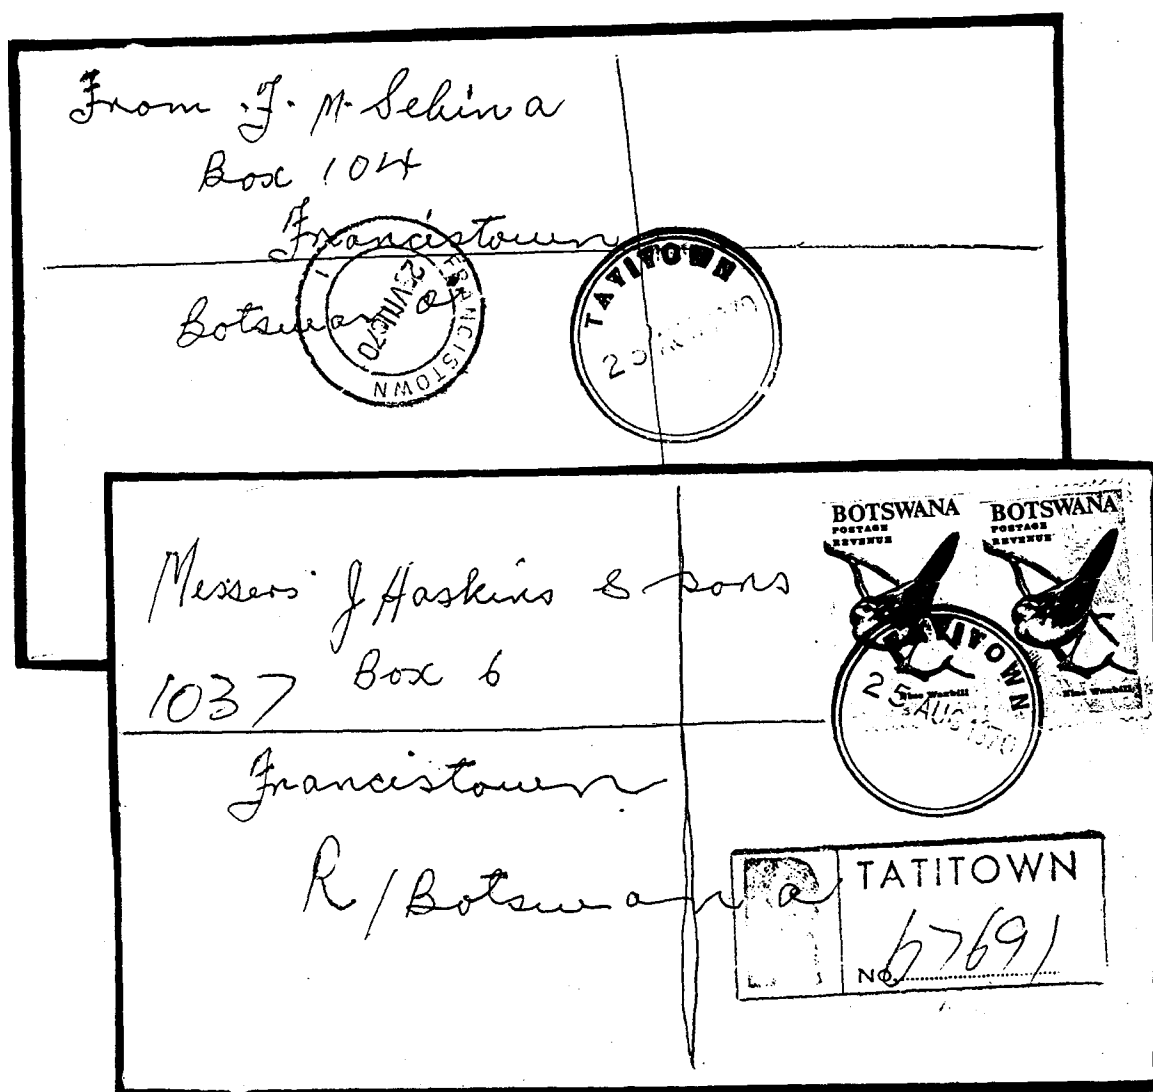 From J. M. Sehina
Box 104
Francistown
Botswana
FRANCISTOWN
1
FRANCISTOWN
TAYITOWN
Messers J Haskins & sons
Box 6
1037
Francistown
R/Botswana
BOTSWANA
POSTAGE
REVENUE
BOTSWANA
POSTAGE
REVENUE
Waxbill
Waxbill
TAYITOWN
25 AUG 1970
TATITOWN
No. 67691